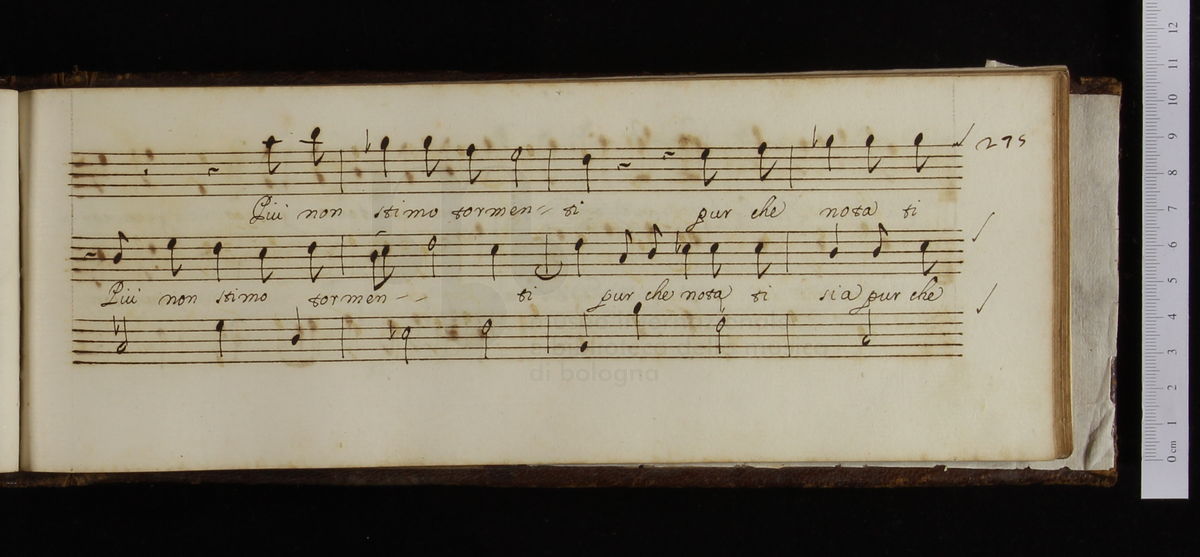 295
Piú non stimo tormen= ti pur che nota ti
Piú non stimo tormen-- ti pur che nota ti sia pur che
di bologna
12
11
10
9
8
7
6
5
4
3
2
1
0 cm